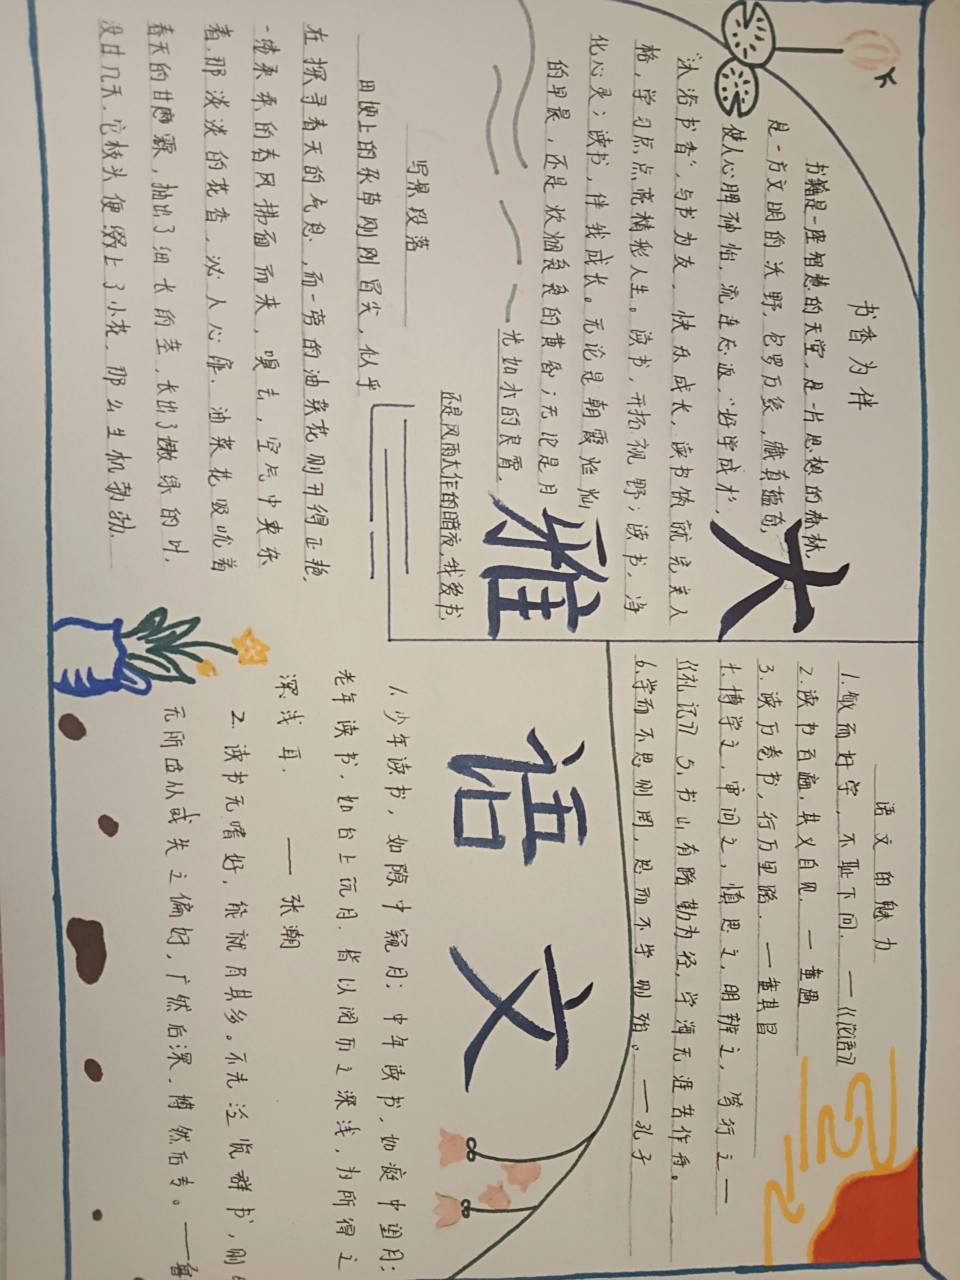 大雅
语文
书香为伴
书籍是一座智慧的天堂，是一片思想的森林，
是一方文明的沃野，包罗万象，藏真蕴奇，
使人心脾神怡，流连忘返，“好学成才，
沐浴书香”，与书为友，快乐成长，读书成就完美人
格，学习点点亮精彩人生。读书，开拓视野；读书，净
化心灵；读书，伴我成长。无论是朝霞烂灿
的早晨，还是炊烟袅袅的黄昏；无论是月
光如水的良宵，
还是风雨大作的暗夜，我爱书
写景段落
田埂上的禾苗刚刚冒尖，似乎
在探寻春天的气息，而一旁的油菜花则开得正艳，
一阵柔柔的春风拂面而来，嗅去，空气中夹杂
着那淡淡的花香，沁人心脾，油菜花吸吮着
春天的甘露，抽出了细长的茎，长出了嫩绿的叶，
没过几天，它枝头便缀上了小花，那么生机勃勃。
语文的魅力
1.敏而好学，不耻下问。——《论语》
2.读书百遍，其义自见。——董遇
3.读万卷书，行万里路。——董其昌
4.博学之，审问之，慎思之，明辨之，笃行之——
《礼记》5.书山有路勤为径，学海无涯苦作舟。
6.学而不思则罔，思而不学则殆。——孔子
1.少年读书，如隙中窥月；中年读书，如庭中望月；
老年读书，如台上玩月，皆以阅历之深浅，为所得之
深浅耳。——张潮
2.读书无嗜好，能就有其多。不先泛览群书，则
无所适从或失之偏好，广然后深，博然后专。——鲁